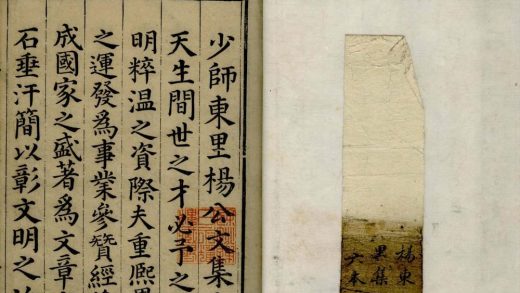 楊東
里集
六本
少師東里楊公文集
天生間世之才必予之
明粹温之資際夫重熈
之運發爲事業參贊經
成國家之盛著爲文章
石垂汗簡以彰文明之